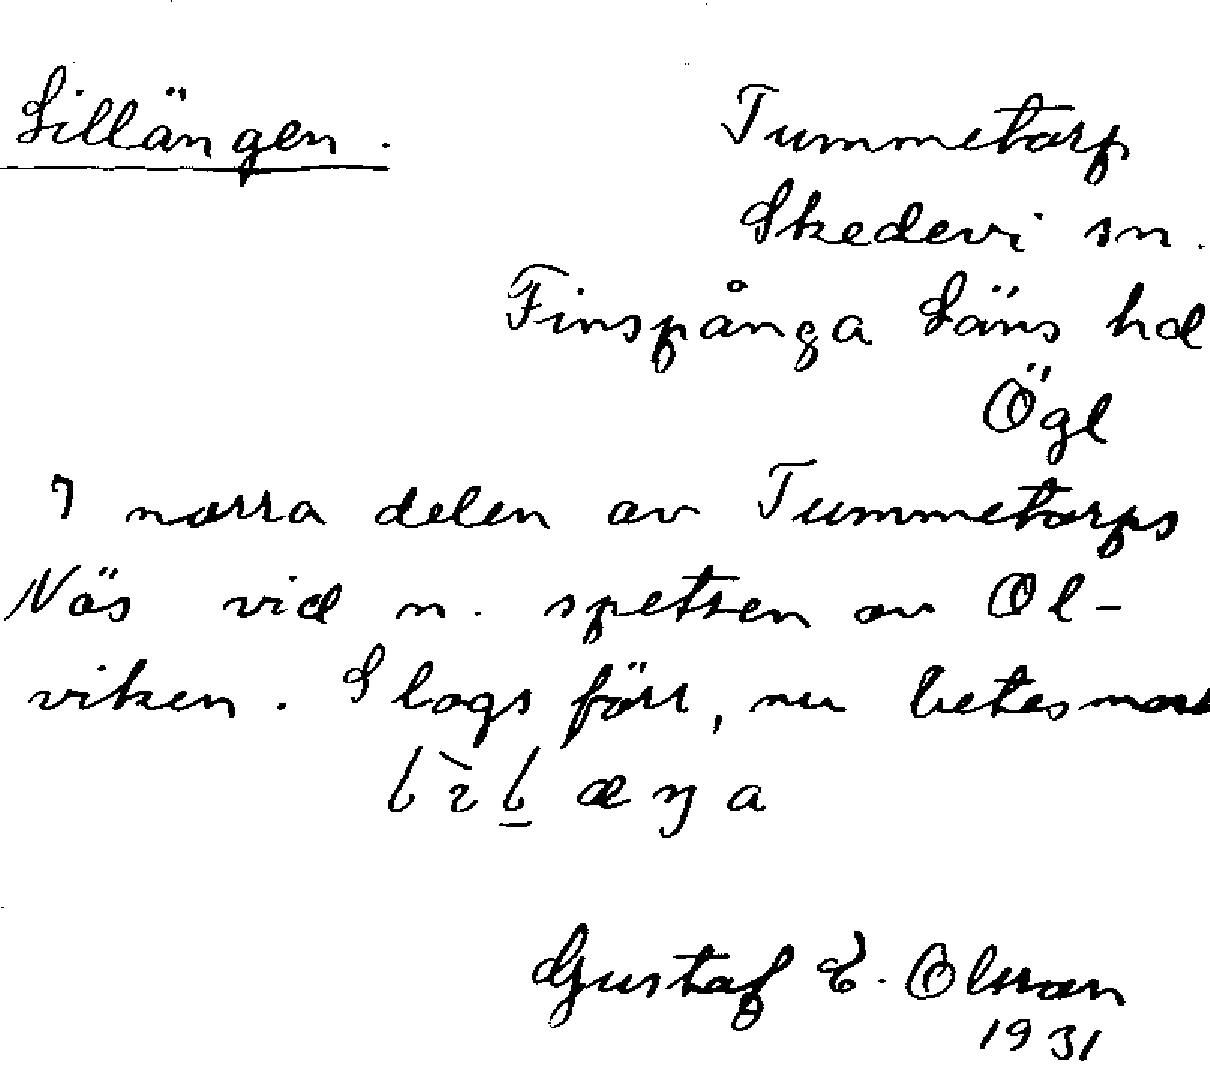 Lillängen.
Tummetorp
Skedevi sn.
Finspånga Läns hd
Ögl
I norra delen av Tummetorps
Näs vid n. spetsen av Ol-
viken. Slogs förr, nu betesmark
Gustaf E. Olsson
1931